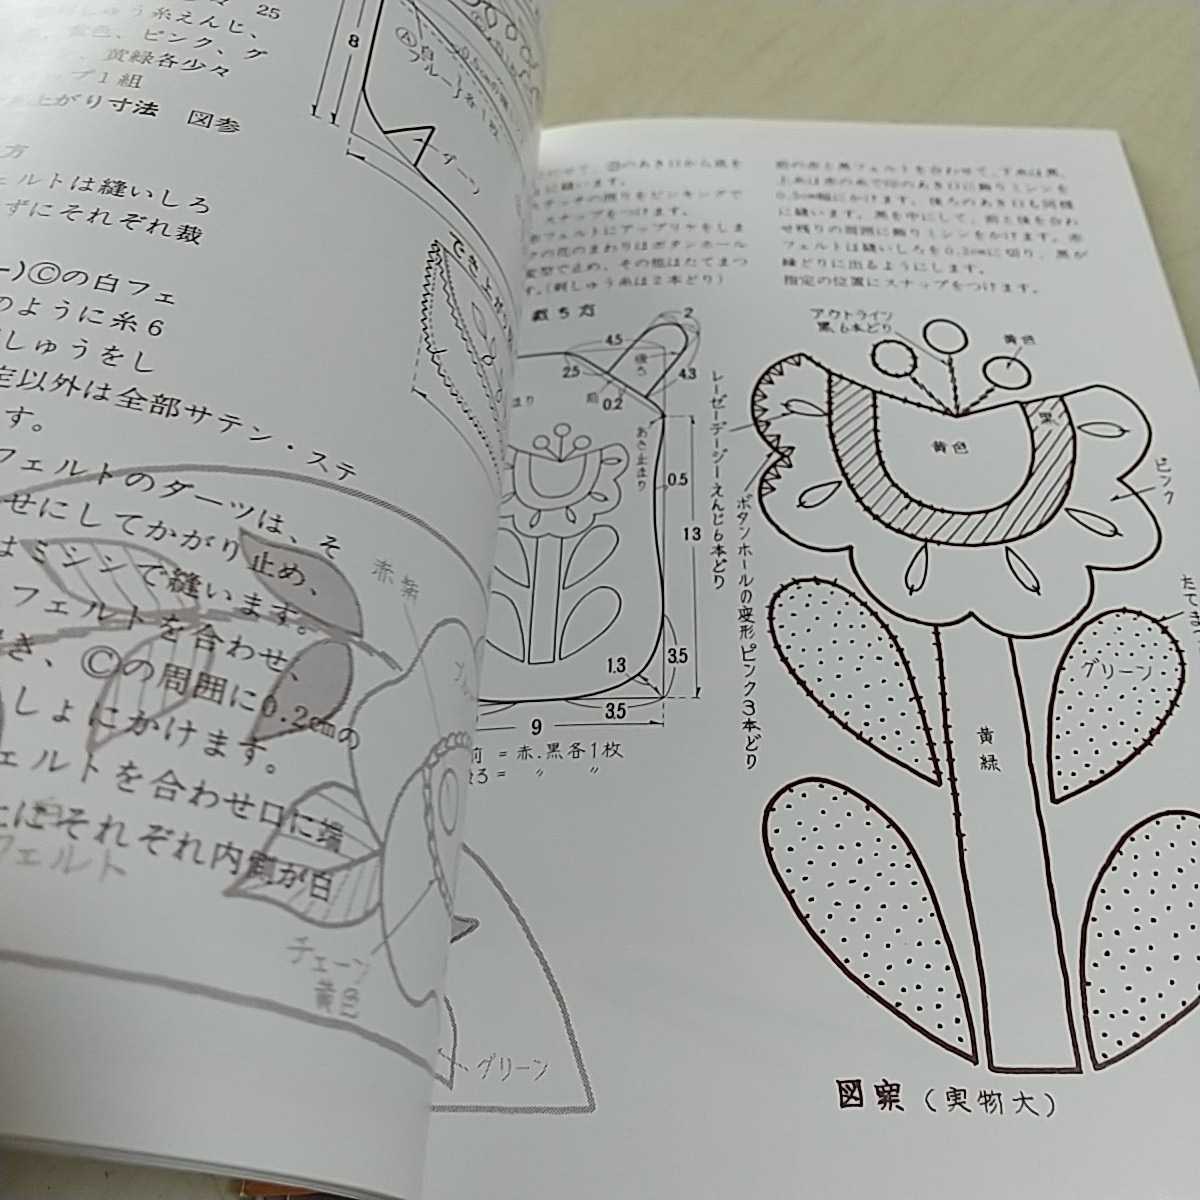 25
しゅう糸えんじ、
色、ピンク、グ
黄緑各少々
1組
上がり寸法 図参
方
ェルトは縫いしろ
ずにそれぞれ裁
Ⓒの白フェ
のように糸6
しゅうをし
定以外は全部サテン・ステ
す。
フェルトのダーツは、そ
せにしてかがり止め、
はミシンで縫います。
フェルトを合わせ、
き、Ⓒの周囲に0.2cmの
しょにかけます。
ェルトを合わせ口に端
上にそれぞれ内側が白
フェルト
8
Ⓐ
白
ブルー
各1枚
でき上が
赤紫
チェーン
黄色
グリーン
のあき口から底を
に縫います。
ステッチの周りをピンキングで
スナップをつけます。
フェルトにアップリケをしま
の花のまわりはボタンホール
変型で止め、その他はたてまつ
す。(刺しゅう糸は2本どり)
前の赤と黒フェルトを合わせて、下糸は黒、
上糸は赤の糸で印のあき口に飾りミシンを
0.5cm幅にかけます。後ろのあき口も同様
に縫います。黒を中にして、前と後を合わ
せ残りの周囲に飾りミシンをかけます。赤
フェルトは縫いしろを0.2cmに切り、黒が
縁どりに出るようにします。
指定の位置にスナップをつけます。
裁ち方
2
4.5
後ろ
2.5
4.3
前
0.2
あき止まり
0.5
13
1.3
3.5
3.5
9
前=赤、黒各1枚
後ろ= 〃 〃
アウトライン
黒6本どり
黄色
レーゼーデージーえんじ6本どり
黒
黄色
ピンク
ボタンホールの変形ピンク3本どり
たてま
グリーン
黄緑
図案(実物大)